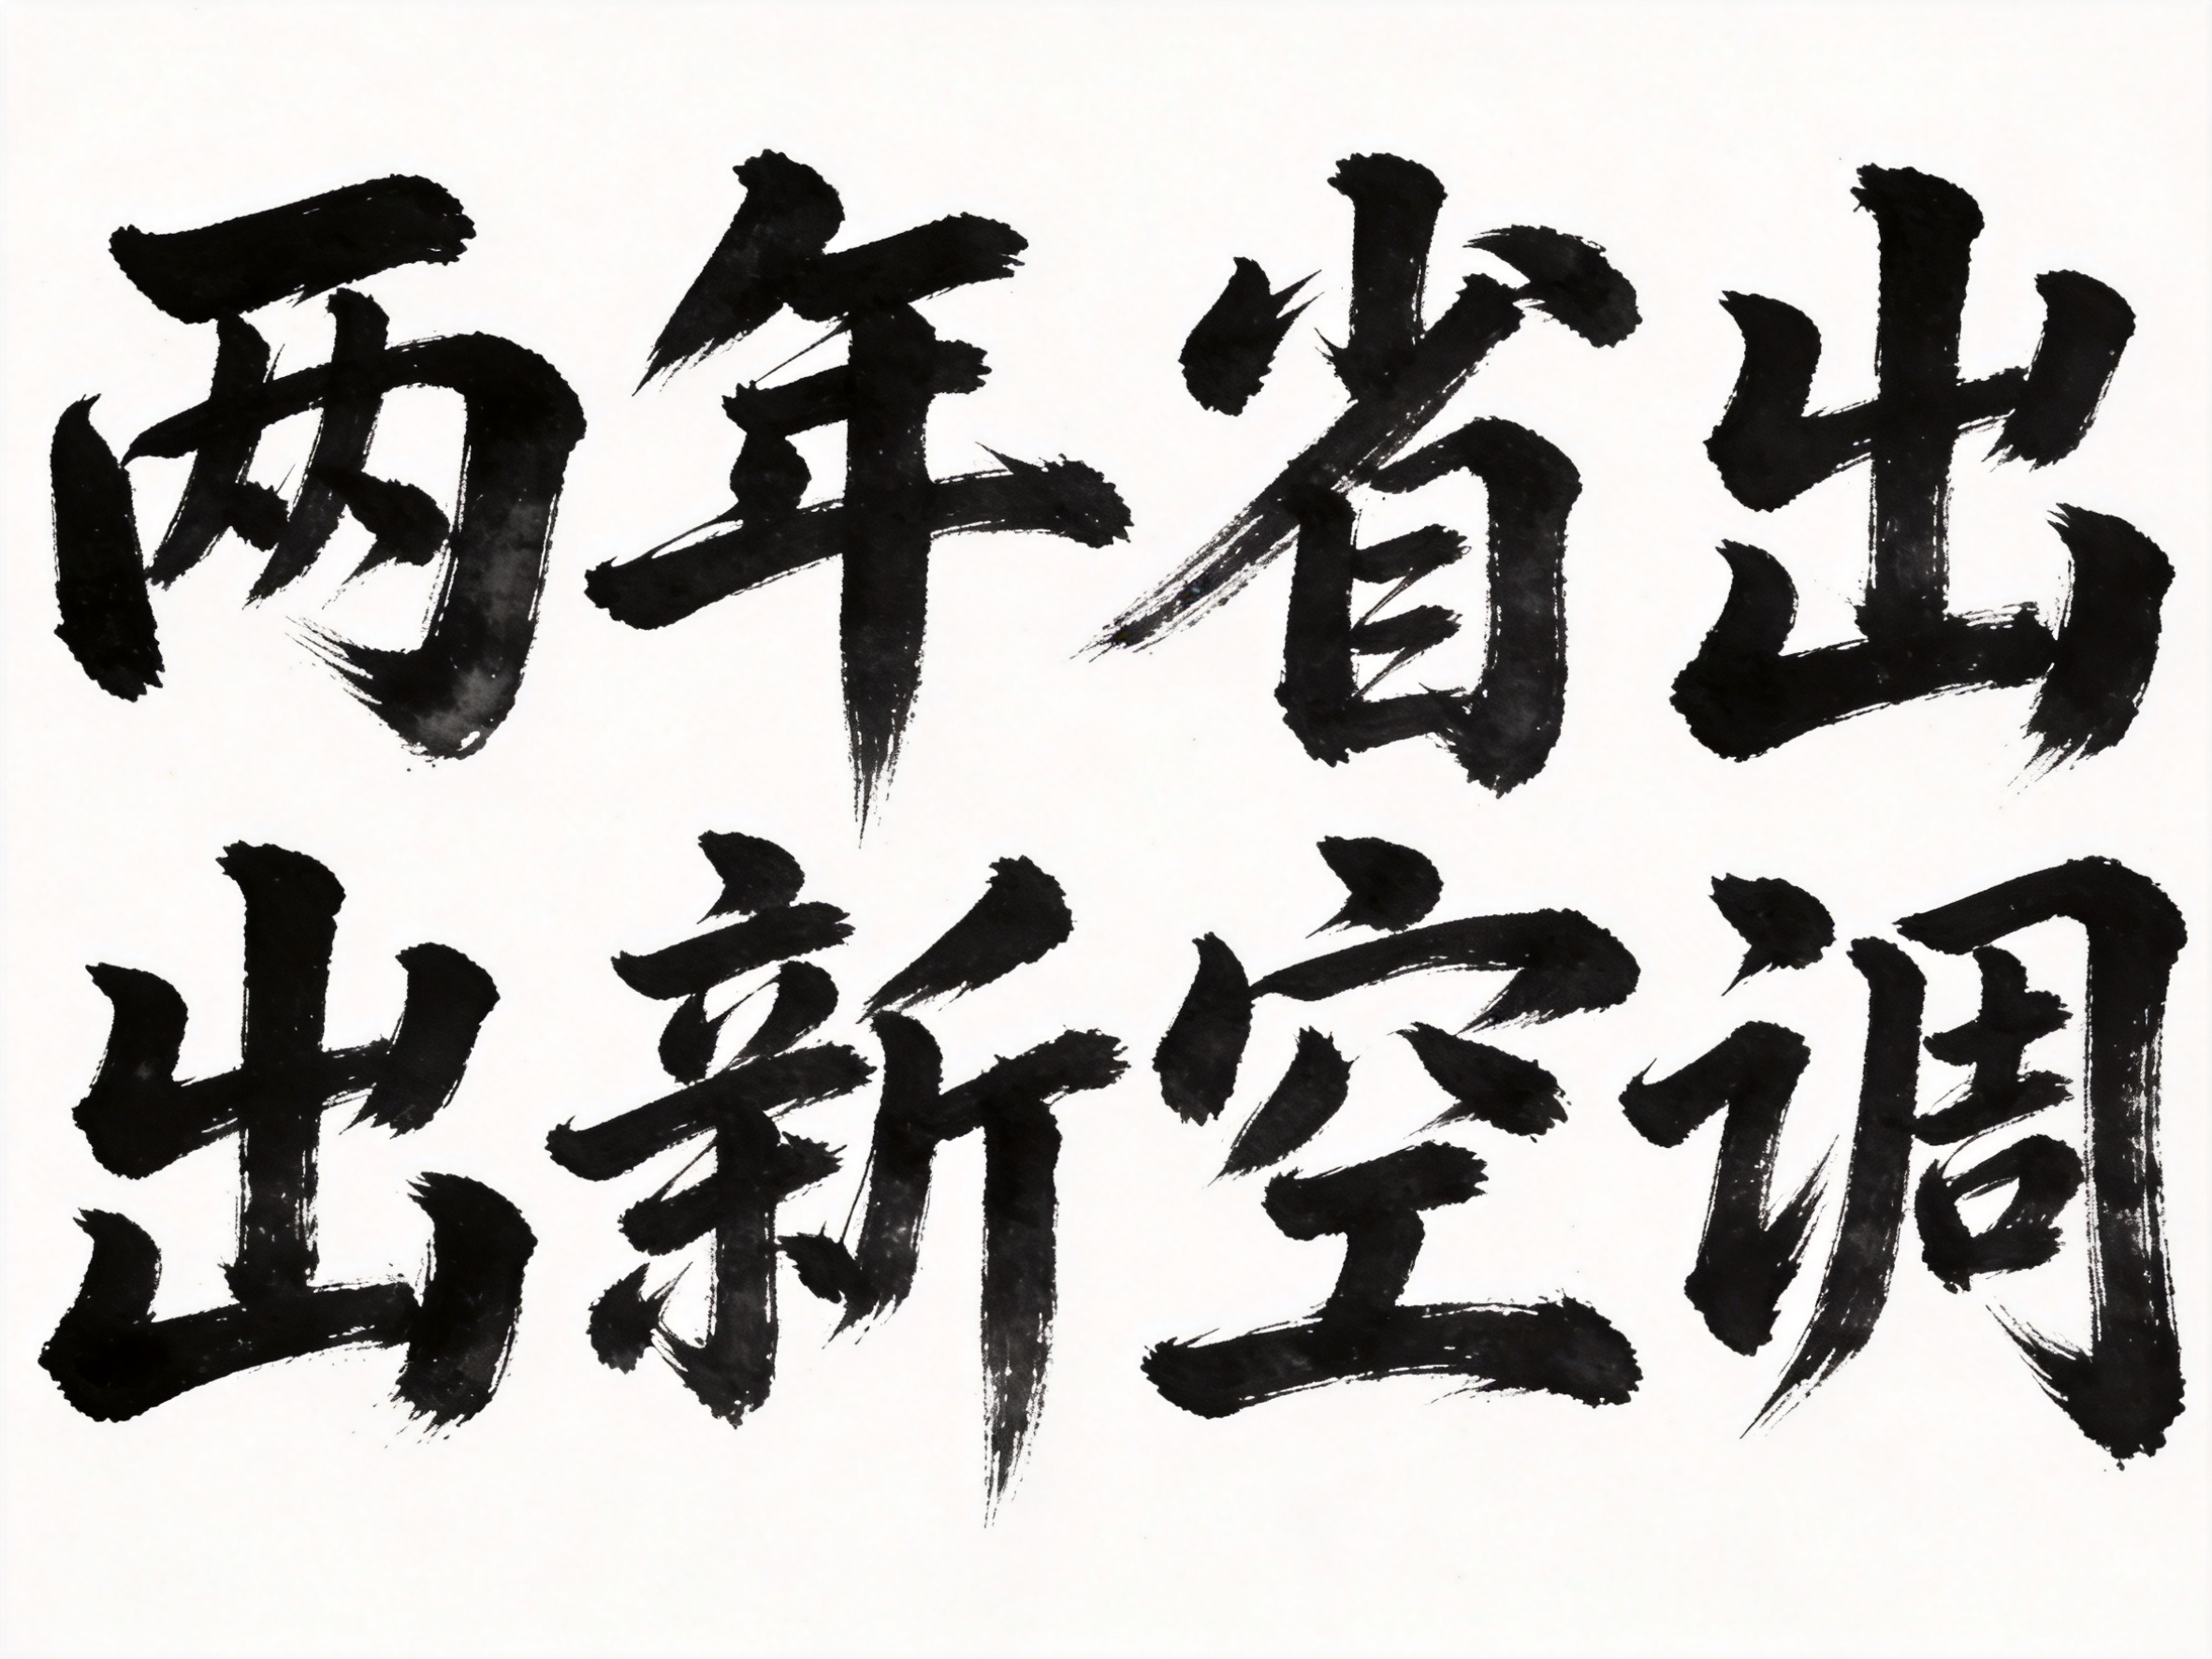 两年省出
出新空调